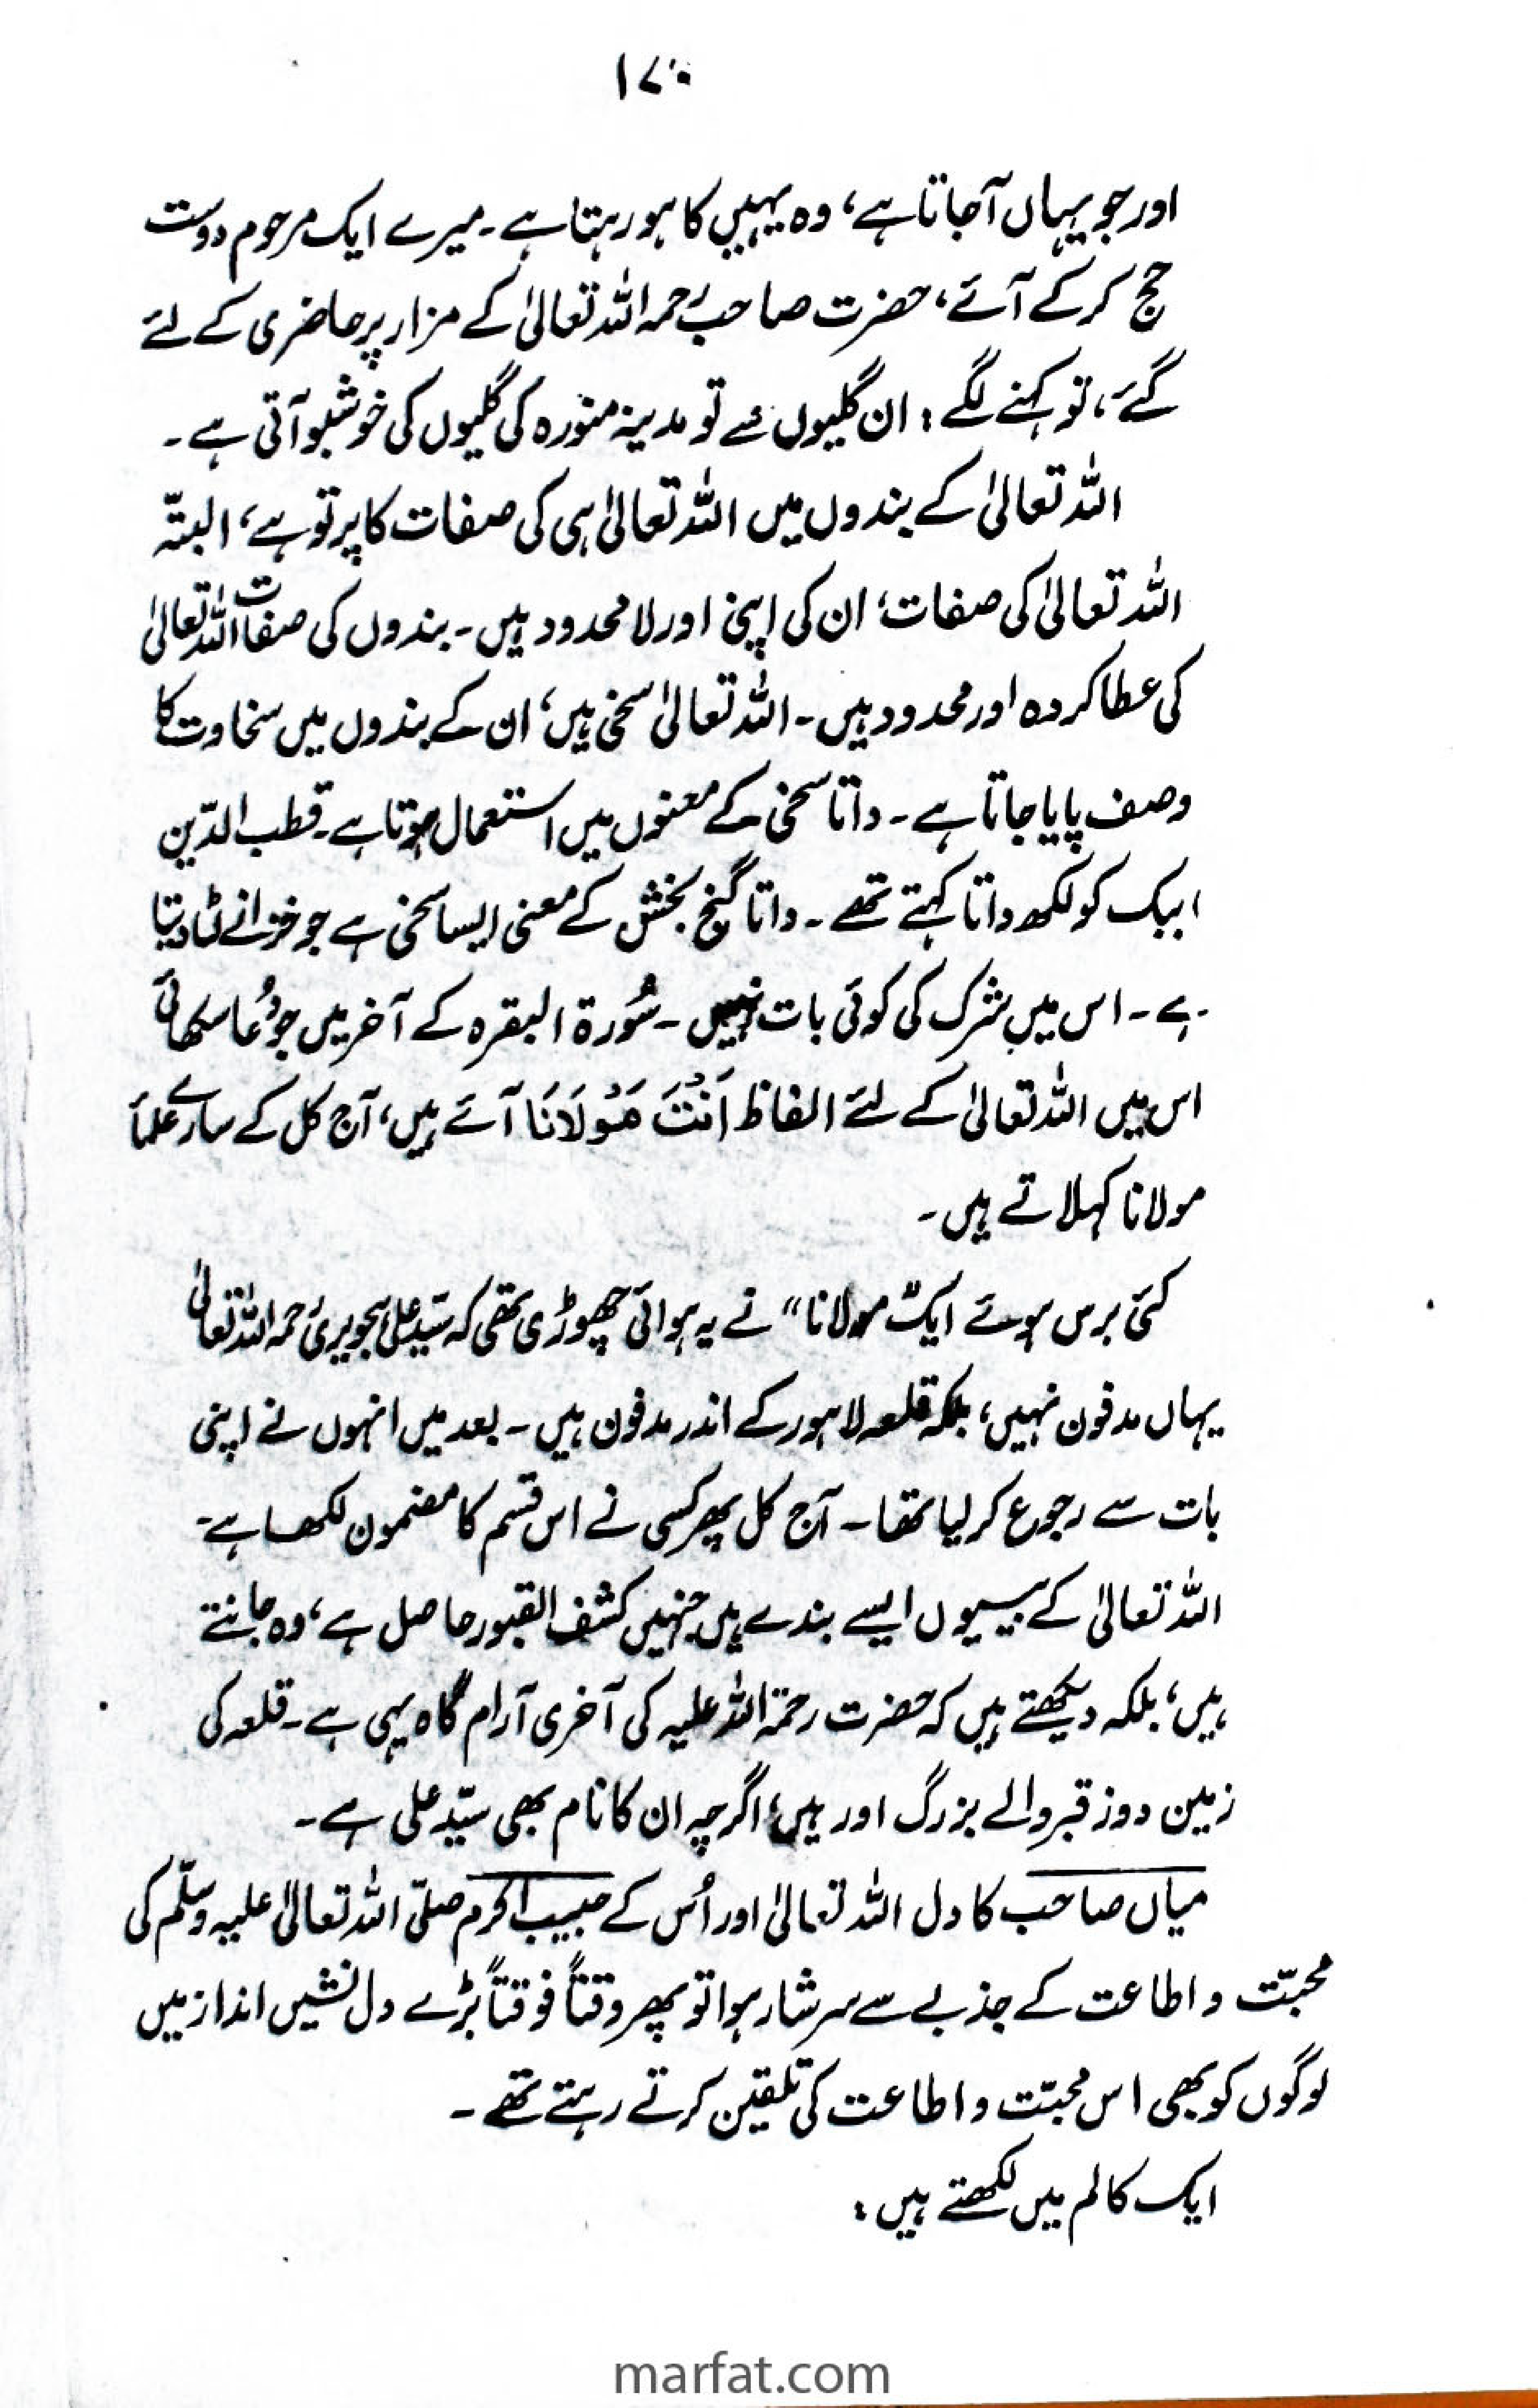 ۱۷۰
اور جو یہاں آجاتا ہے، وہ یہیں کا ہو رہتا ہے۔ میرے ایک مرحوم دوست
حج کرکے آئے، حضرت صاحب رحمہ اللہ تعالیٰ کے مزار پر حاضری کے لئے
گئے، تو کہنے لگے : ان گلیوں سے تو مدینہ منورہ کی گلیوں کی خوشبو آتی ہے۔
اللہ تعالیٰ کے بندوں میں اللہ تعالیٰ ہی کی صفات کا پرتو ہے، البتّہ
اللہ تعالیٰ کی صفات، ان کی اپنی اور لا محدود ہیں۔ بندوں کی صفات اللہ تعالیٰ
کی عطا کردہ اور محدود ہیں۔ اللہ تعالیٰ سخی ہیں، ان کے بندوں میں سخاوت کا
وصف پایا جاتا ہے۔ داتا سخی کے معنوں میں استعمال ہوتا ہے۔ قطب الدّین
ایبک کو لکھ داتا کہتے تھے۔ داتا گنج بخش کے معنی ایسا سخی ہے جو خزانے لٹا دیتا
ہے۔ اس میں شرک کی کوئی بات نہیں۔ سُورة البقرہ کے آخر میں جو دُعا سکھائی
اس میں اللہ تعالیٰ کے لئے الفاظ اَنْتَ مَوْلَانَا آئے ہیں، آج کل کے سارے علمأ
مولانا کہلاتے ہیں۔
کئی برس ہوئے ایک "مولانا" نے یہ ہوائی چھوڑی تھی کہ سیّد علی ہجویری رحمہ اللہ تعالیٰ
یہاں مدفون نہیں، بلکہ قلعہ لاہور کے اندر مدفون ہیں۔ بعد میں انہوں نے اپنی
بات سے رجوع کر لیا تھا۔ آج کل پھر کسی نے اس قسم کا مضمون لکھا ہے۔
اللہ تعالیٰ کے بیسیوں ایسے بندے ہیں جنہیں کشف القبور حاصل ہے، وہ جانتے
ہیں، بلکہ دیکھتے ہیں کہ حضرت رحمۃ اللہ علیہ کی آخری آرام گاہ یہی ہے۔ قلعہ کی
زمین دوز قبر والے بزرگ اور ہیں، اگرچہ ان کا نام بھی سیّد علی ہے۔
میاں صاحب کا دل اللہ تعالیٰ اور اُس کے حبیب اکرم صلّی اللہ تعالیٰ علیہ وسلّم کی
محبّت و اطاعت کے جذبے سے سرشار ہوا تو پھر وقتاً فوقتاً بڑے دل نشیں انداز میں
لوگوں کو بھی اس محبّت و اطاعت کی تلقین کرتے رہتے تھے۔
ایک کالم میں لکھتے ہیں :
marfat.com